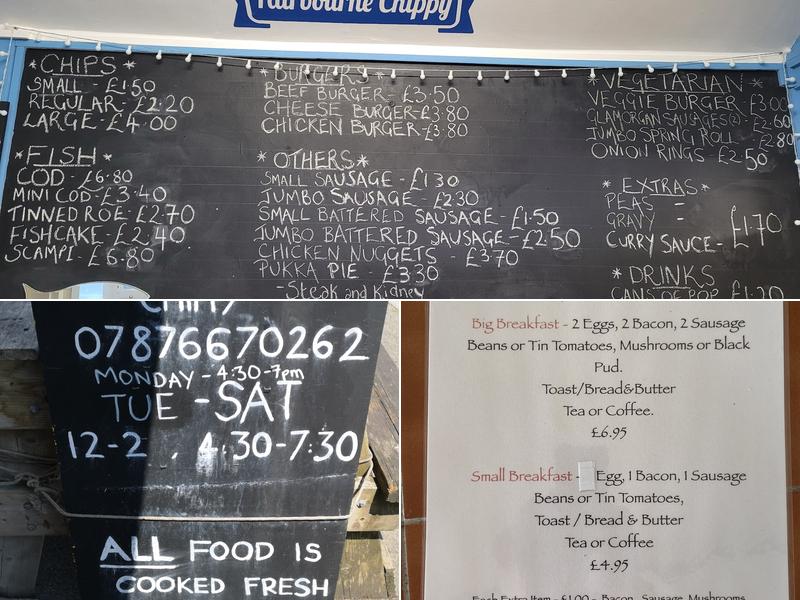 Fairbourne Chippy
*CHIPS*
SMALL - £1.50
REGULAR - £2.20
LARGE - £4.00
*FISH*
COD - £6.80
MINI COD - £3.40
TINNED ROE - £2.70
FISHCAKE - £2.40
SCAMPI - £6.80
*BURGERS*
BEEF BURGER - £3.50
CHEESE BURGER - £3.80
CHICKEN BURGER - £3.80
*OTHERS*
SMALL SAUSAGE - £1.30
JUMBO SAUSAGE - £2.30
SMALL BATTERED SAUSAGE - £1.50
JUMBO BATTERED SAUSAGE - £2.50
CHICKEN NUGGETS - £3.70
PUKKA PIE - £3.30
- Steak and Kidney
*VEGETARIAN*
VEGGIE BURGER - £3.00
GLAMORGAN SAUSAGES (2) - £2.60
JUMBO SPRING ROLL - £2.80
ONION RINGS - £2.50
*EXTRAS*
PEAS -
GRAVY -
CURRY SAUCE - £1.70
*DRINKS
CANS OF POP £1.20
CHIPPY
07876670262
MONDAY - 4:30-7pm
TUE - SAT
12-2 , 4.30-7:30
ALL FOOD IS
COOKED FRESH
Big Breakfast - 2 Eggs, 2 Bacon, 2 Sausage
Beans or Tin Tomatoes, Mushrooms or Black
Pud.
Toast/Bread&Butter
Tea or Coffee.
£6.95
Small Breakfast - Egg, 1 Bacon, 1 Sausage
Beans or Tin Tomatoes,
Toast / Bread & Butter
Tea or Coffee
£4.95
Each Extra Item - £1.00 - Bacon, Sausage, Mushrooms